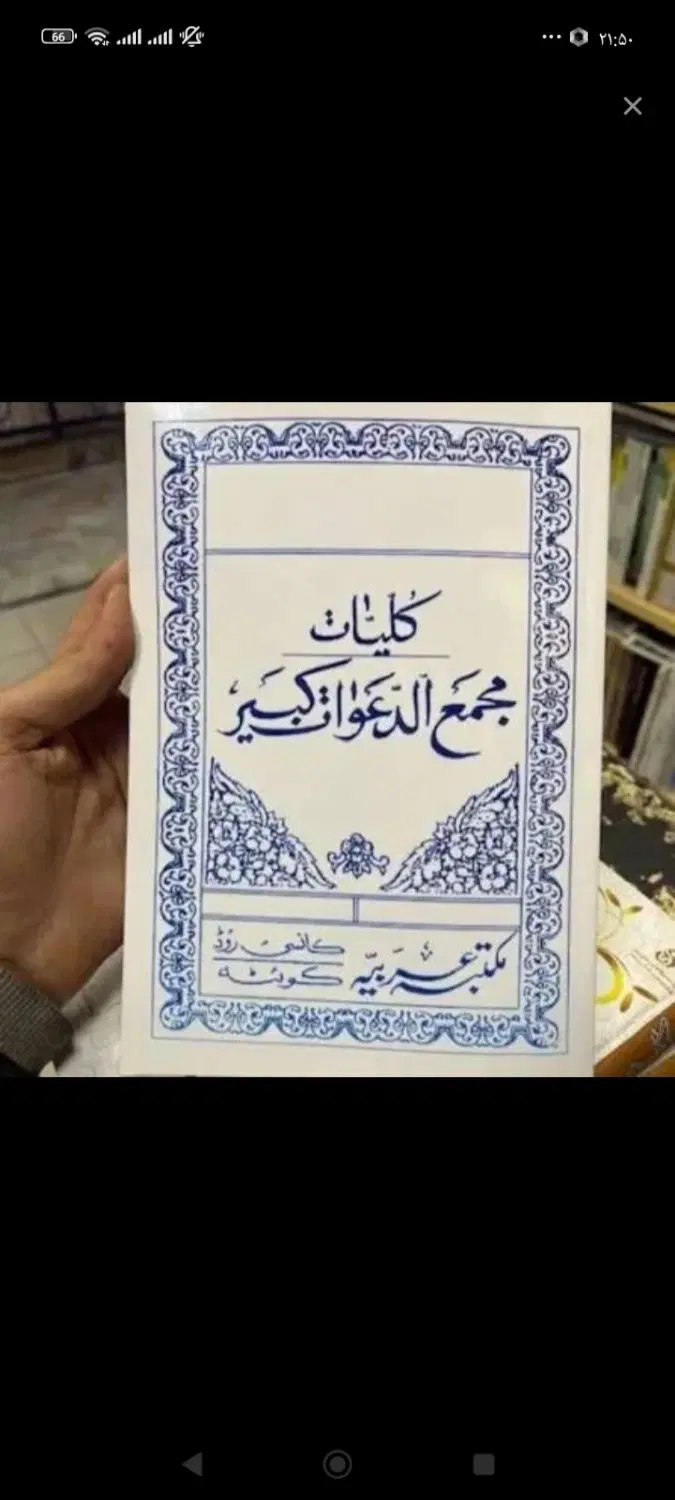 66
۲۱:۵۰
کُلّیّات
مجمَع الدّعَوات کبَیر
مکتبہ عَربیّہ
کانسی روڈ
کوئٹہ